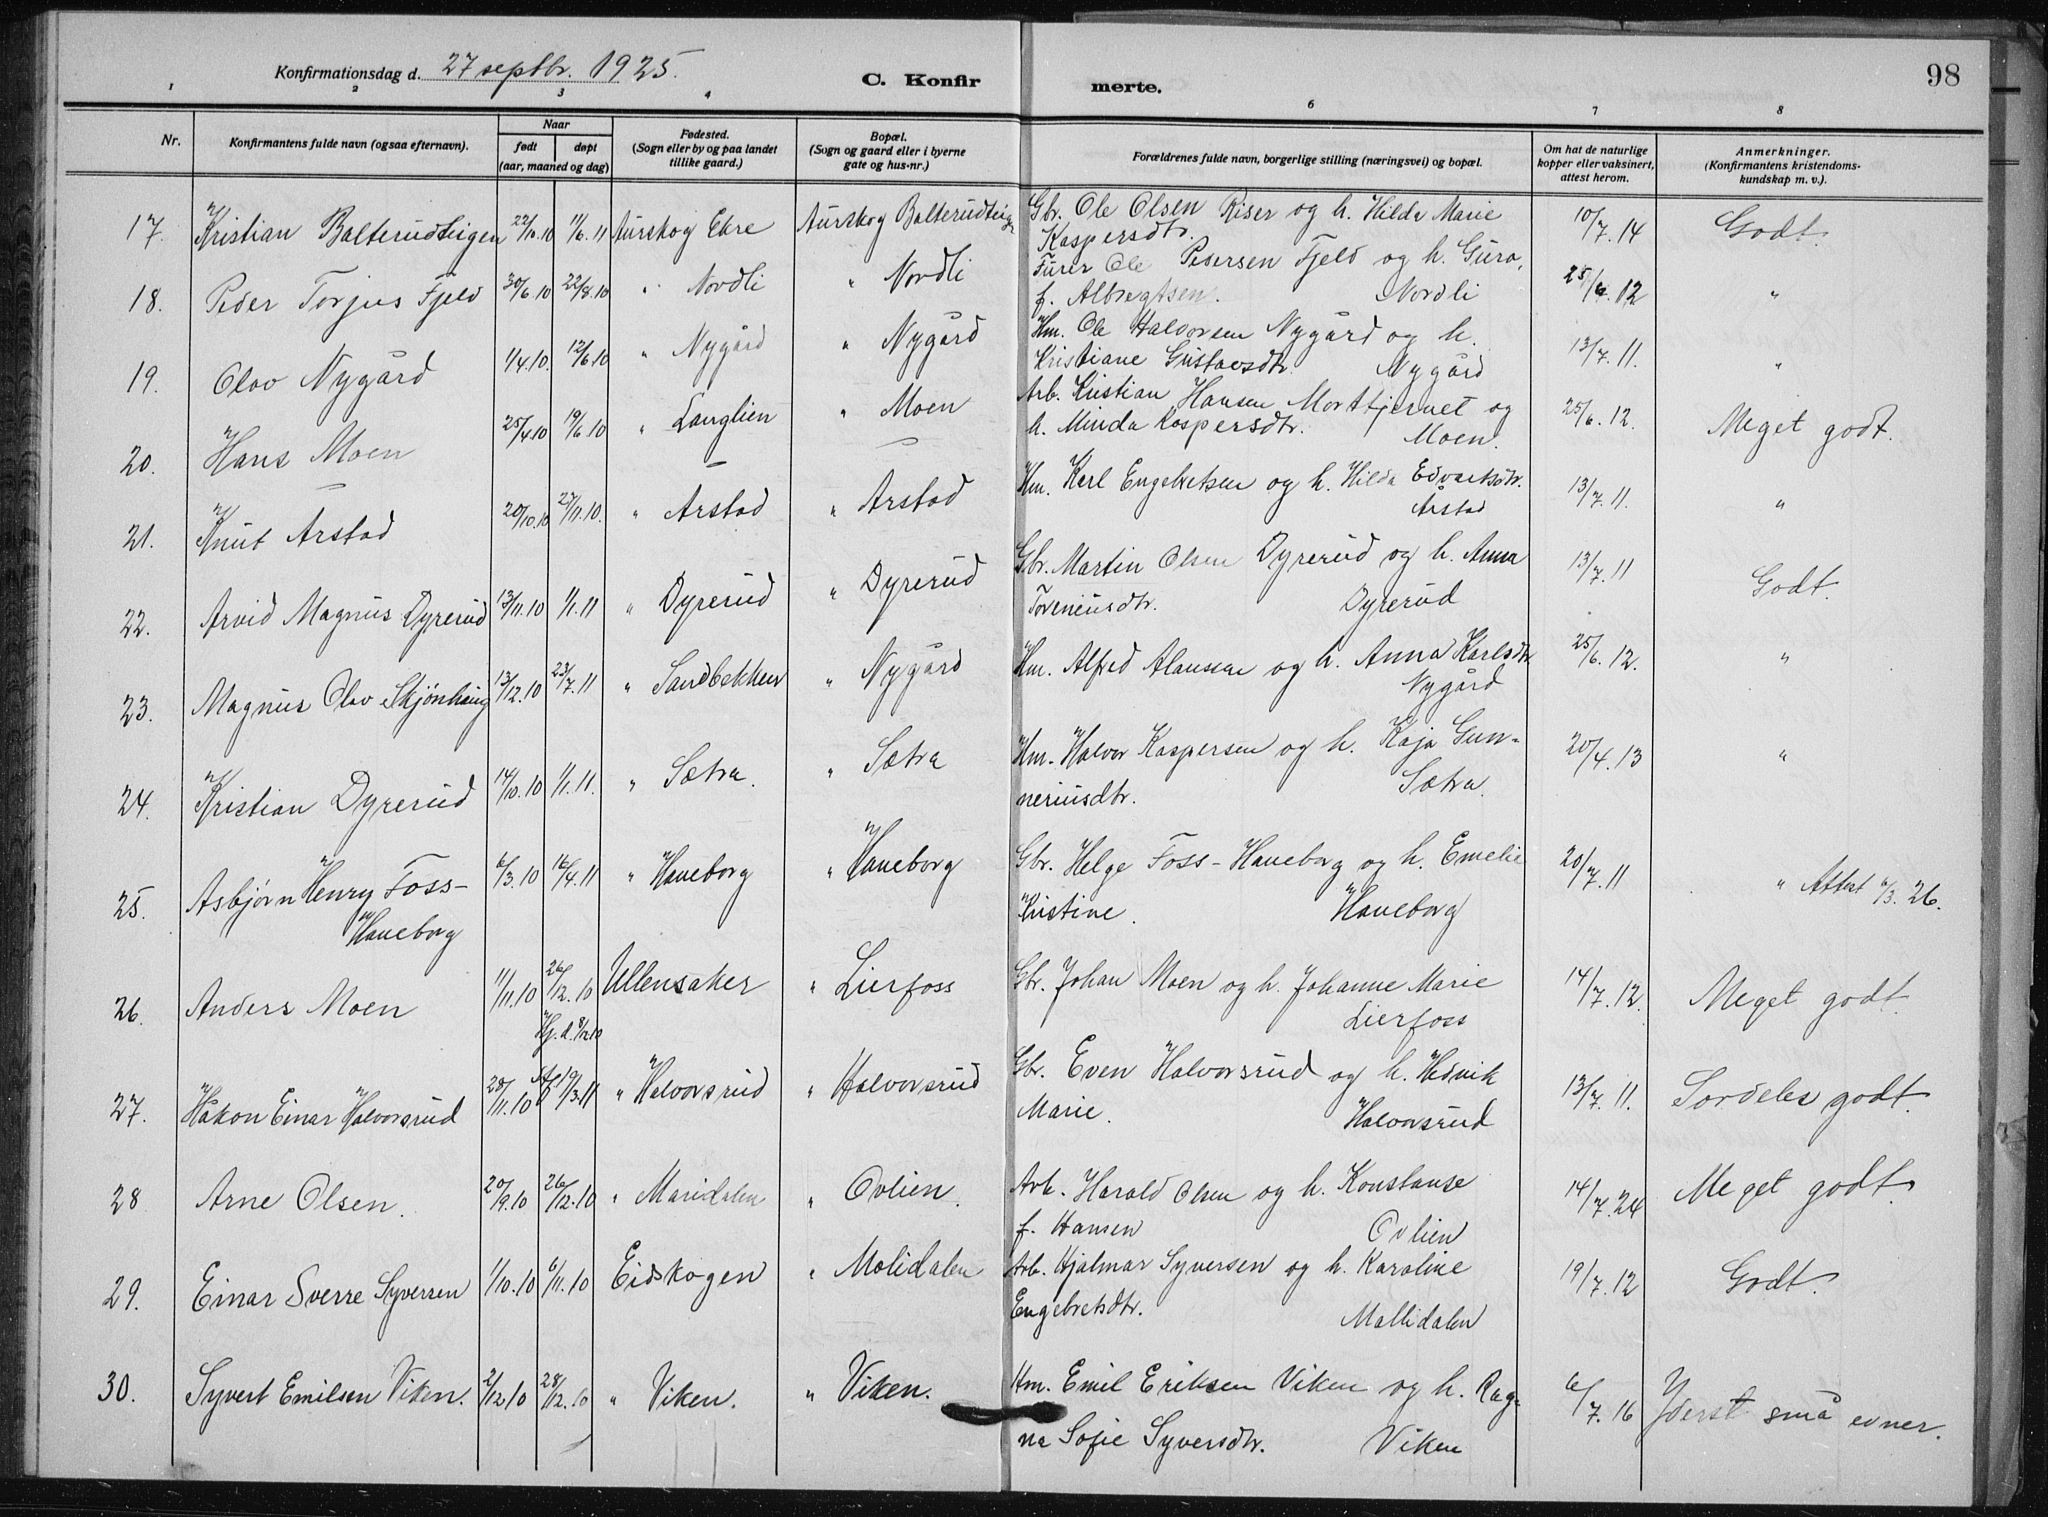 Konfirmationsdag d. 27 septbr. 1925.
C. Konfir merte.
98
1 2 3 4 6 7 8
Nr.
Konfirmantens fulde navn (ogsaa efternavn).
Naar
født
døpt
(aar, maaned og dag)
Fødested.
(Sogn eller by og paa landet
tillike gaard.)
Bopæl.
(Sogn og gaard eller i byerne
gate og hus-nr.)
Forældrenes fulde navn, borgerlige stilling (næringsvei) og bopæl.
Om hat de naturlige
kopper eller vaksinert,
attest herom.
Anmerkninger.
(Konfirmantens kristendoms-
kundskap m. v.).
17. Kristian Balterudteigen 22/10.10 11/6.11 Aurskog Ekre Aurskog Balterudteig. Gbr. Ole Olsen Riser og h. Hilda Marie 10/7.14 Godt.
Kaspersdtr.
18. Peder Torjus Fjeld 30/6.10 22/8.10 " Nordli " Nordli Furer Ole Pedersen Fjeld og h. Guro, 25/6.12 "
f. Albregtsen. Nordli
19. Olav Nygård 1/4.10. 12/6.10 " Nygård " Nygård Hm. Ole Halvorsen Nygård og h. 13/7.11. "
Kristiane Gustavsdtr. Nygård
20. Hans Moen 25/4.10 19/6.10 " Langlien " Moen Arb. Kristian Hansen Morttjernet og 25/6.12. Meget godt.
h. Minda Kaspersdtr. Moen.
21. Knut Arstad 20/10.10 27/11.10. " Arstad " Arstad Hm. Karl Engebretsen og h. Hilda Edvartsdtr. 13/7.11. "
Årstad
22. Arvid Magnus Dyrerud 13/11.10 1/1.11 " Dyrerud " Dyrerud Gbr. Martin Olsen Dyrerud og h. Anna 13/7.11 Godt.
Toreniusdtr. Dyrerud
23. Magnus Olav Skjønhaug 13/12.10 23/7.11 " Sandbekken " Nygård Hm. Alfred Alaussen og h. Anna Karlsdtr 25/6.12. "
Nygård
24. Kristian Dyrerud 14/10.10 1/1.11. " Sætra. " Sætra Hm. Halvor Kaspersen og h. Kaja Gun- 20/4.13 "
neriusdtr. Sætra.
25. Asbjørn Henry Foss- 6/3.10 16/4.11 " Haneborg " Haneborg Gbr. Helge Foss-Haneborg og h. Emelie 20/7.11 " Attest 6/3.26.
Haneborg Kristine. Haneborg
26. Anders Moen 11/11.10 26/12.10 Ullensaker " Lierfoss Gbr. Johan Moen og h. Johanne Marie 14/7.12. Meget godt.
Hj.d. 8/12 10 Lierfoss
27. Håkon Einar Halvorsrud 28/11.10 19/3.11 " Halvorsrud " Halvorsrud Gbr. Even Halvorsrud og h. Hedvik 13/7.11. Særdeles godt.
Marie. Halvorsrud
28 Arne Olsen. 20/9.10 26/12.10 " Maridalen " Ovlien. Arb. Harald Olsen og h. Konstanse 14/7.24 Meget godt.
f. Hansen Ovlien
29. Einar Sverre Syversen 1/10.10 6/11.10 Eidskogen " Molidalen Arb. Hjalmar Syversen og h. Karoline 19/7.12 Godt.
Engebretsdtr. Mallidalen
30. Syvert Emilsen Viken. 2/12.10 28/12.10 " Viken. " Viken. Hm. Emil Eriksen Viken og h. Rag- 6/7.16 Yderst små evner.
na Sofie Syversdtr. Viken